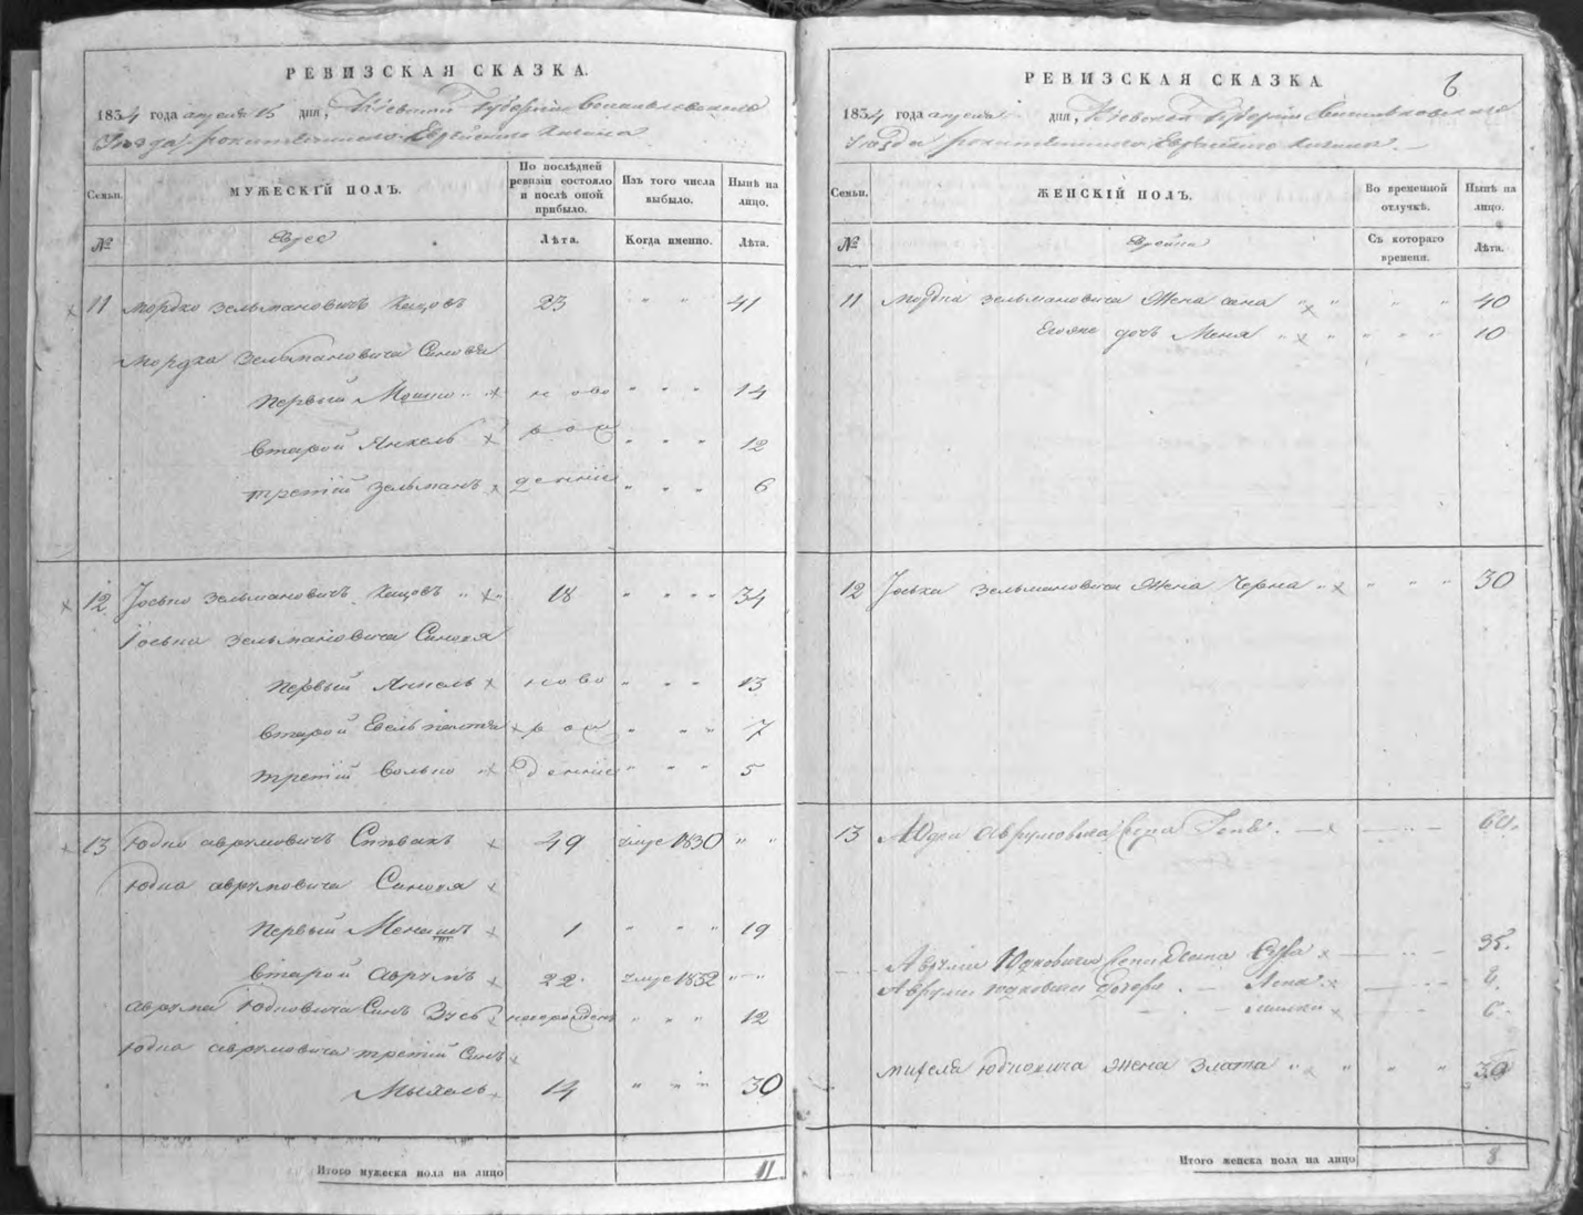 РЕВИЗСКАЯ СКАЗКА.
1834 года апреля 15 дня, Кіевской Губерніи
Уезда Еврейского Кагала
Семьи. МУЖЕСКІЙ ПОЛЪ. По послѣдней ревизіи состояло и послѣ оной прибыло. Изъ того числа выбыло. Нынѣ на лицо.
№ Евреи Лѣта. Когда именно. Лѣта.
11 Мордко Зельмановичъ Кацовъ 23 " " 41
Мордка Зельмановича Сыновья
Первый Мошко " х ново " " " 14
Второй Янкель х рож " " " 12
третій Зельманъ х деніе " " " 6
12 Іосько Зельмановичъ Кацовъ " х " 18 " " " " 34
Іоська Зельмановича Сыновя
Первый Янкель х ново " " " 13
Второй х рож " " " 7
третій Волько " х деніе " " " 5
13 Юдко Аврумовичъ Спѣвакъ х 49 умре 1830 " "
Юдка Аврумовича Сыновя х
Первый Менашъ х 1 " " " 19
Второй Аврумъ х 22 умре 1832 " "
Аврума Юдковича Сынъ Зусь х новорожденъ " " " 12
Юдка Аврумовича третій Сынъ х
Мыхель х 14 " " " 30
Итого мужеска пола на лицо 11
РЕВИЗСКАЯ СКАЗКА. 6
1834 года апреля дня, Кіевской Губерніи
Уезда Еврейского Кагала.
Семьи. ЖЕНСКІЙ ПОЛЪ. Во временной отлучкѣ. Нынѣ на лицо.
№ Еврейки Съ котораго времени. Лѣта.
11 Мордка Зельмановича Жена " х " " " 40
Егоже дочь Меня " х " " " " 10
12 Іоська Зельмановича Жена Черна " х " " " 30
13 Юдки Аврумовича Жена
Аврума Юдковича Жена х 35.
Аврума Юдковича Дочери х
х 6.
Михеля Юдковича Жена Злата " х " " " 30
Итого женска пола на лицо 8